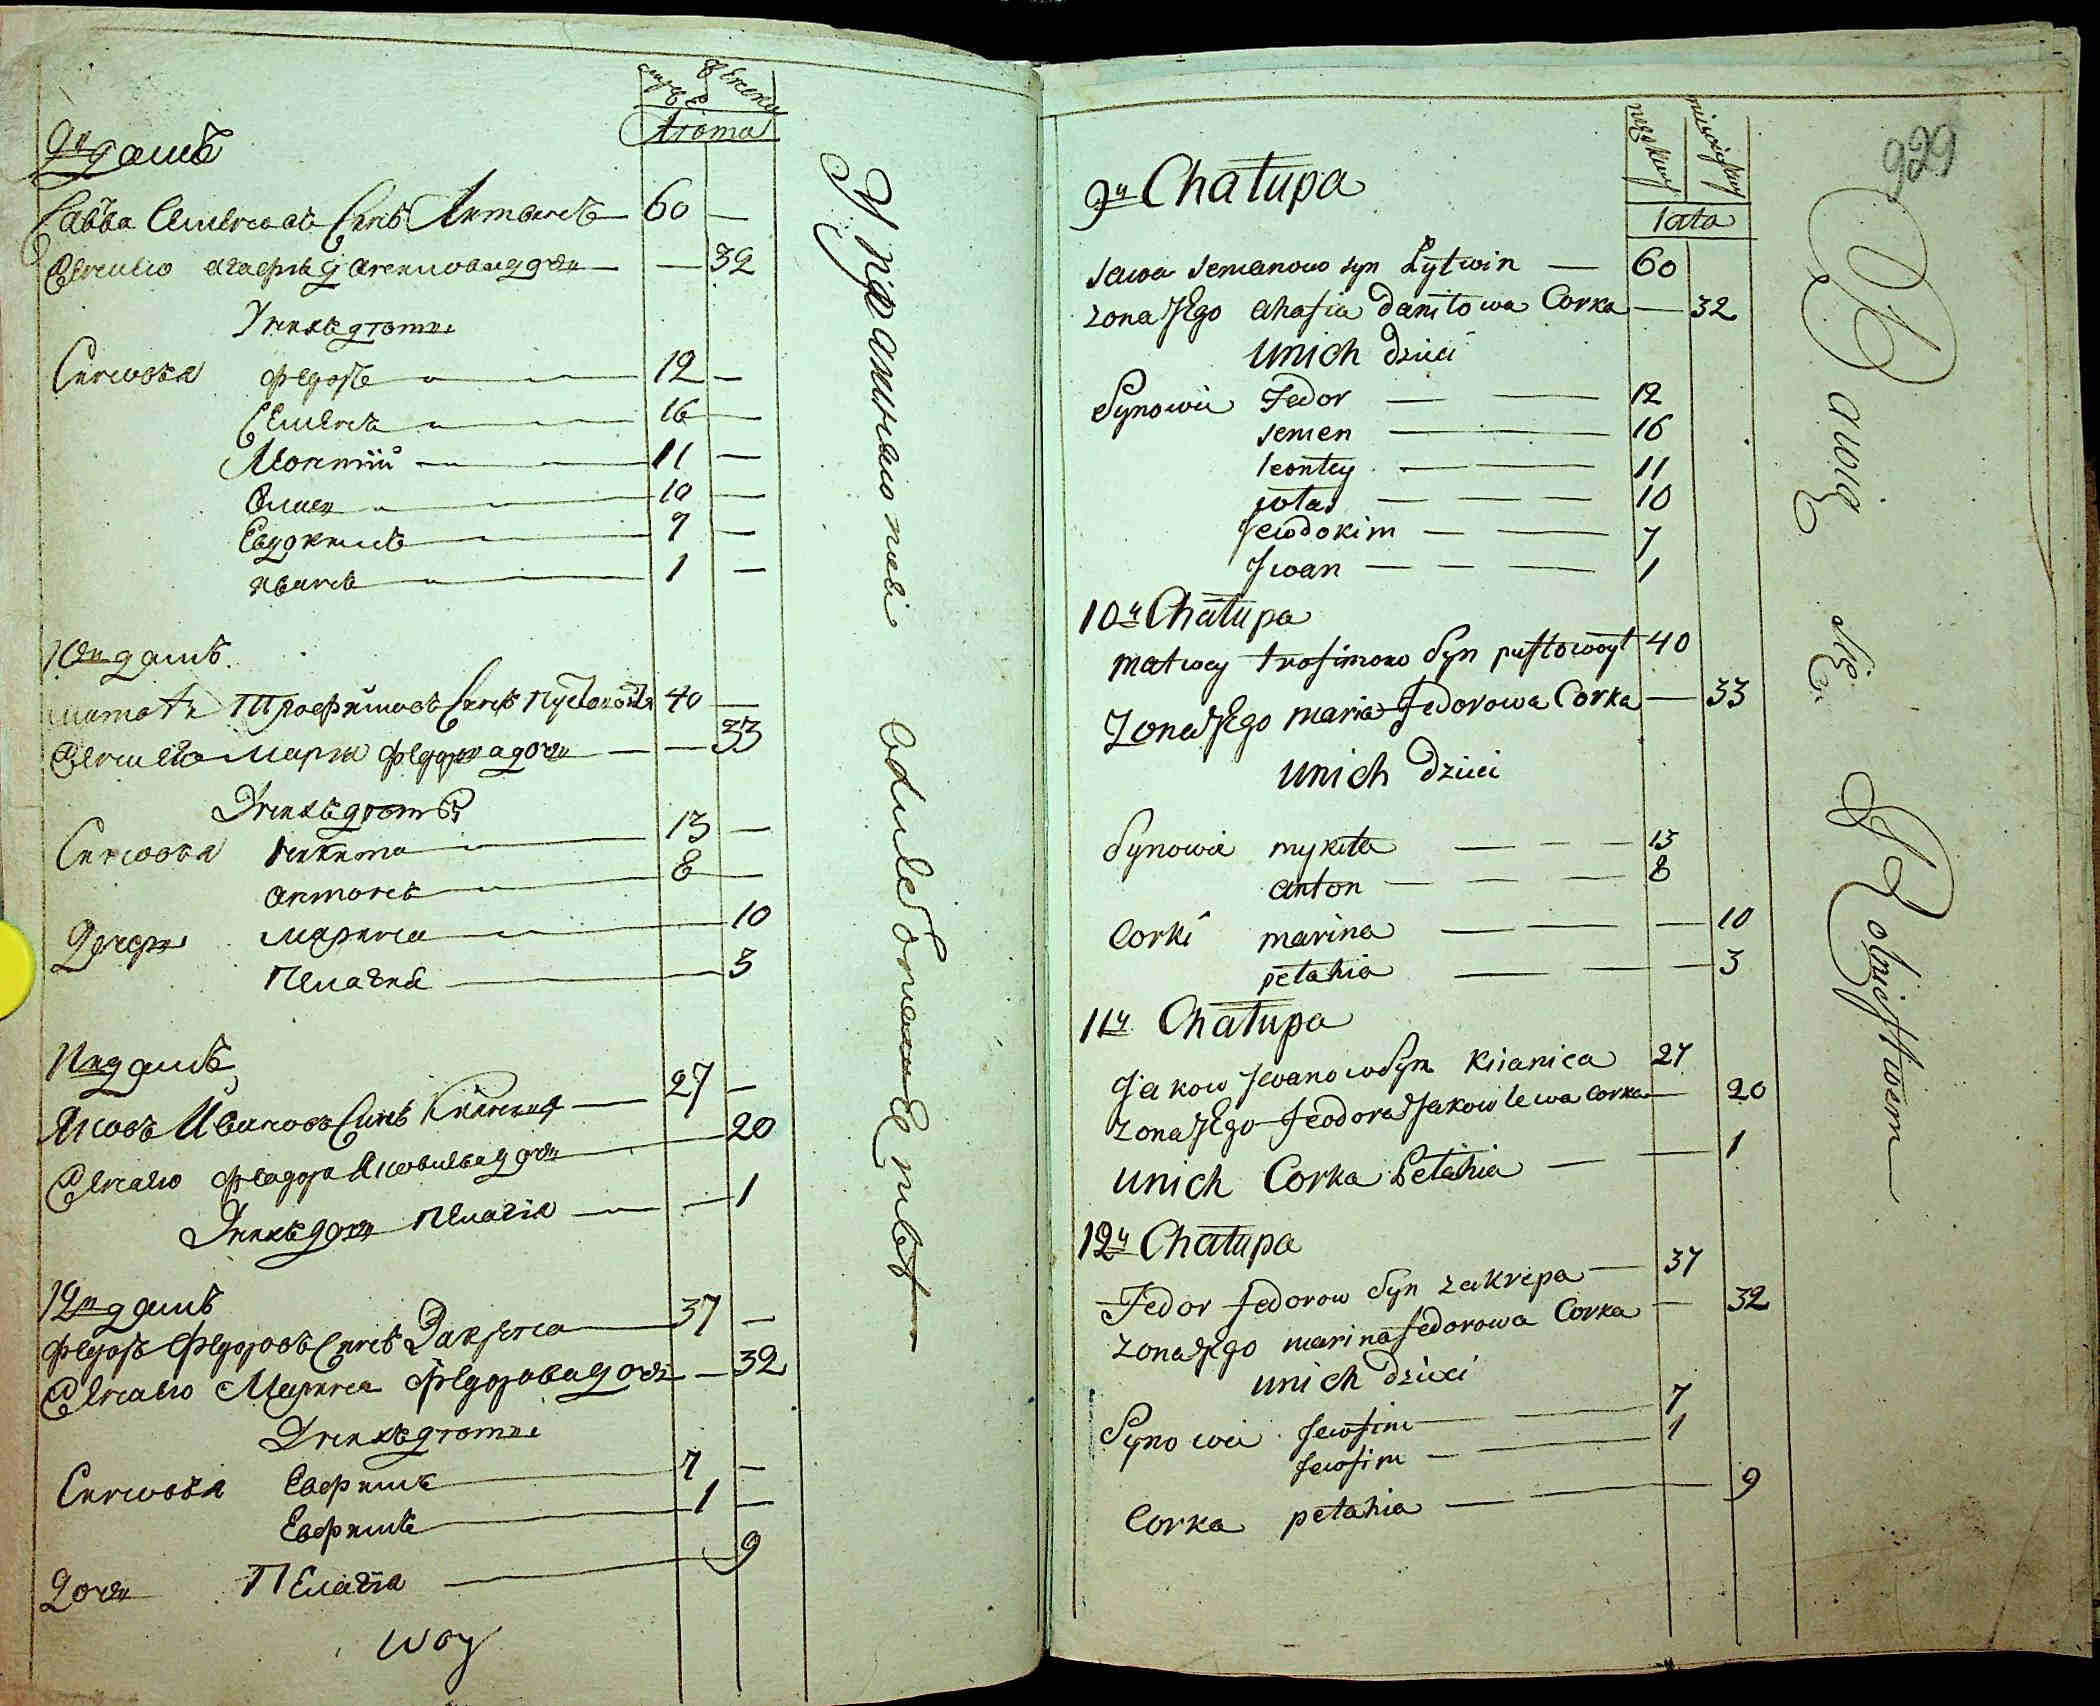 мужска женска
Лѣта
9й домъ
Савва Семеновъ Сынъ Литвинъ 60 —
Жена ево Агафия Даниловна дочь — 32
У нихъ дети
Сыновья Федоръ 12 —
Семенъ 16 —
Леонтий 11 —
10 —
Евдокимъ 7 —
Иванъ 1 —
10й домъ
Матвѣй Трофимовъ Сынъ Пустовойтъ 40 —
Жена ево Мария Федорова дочь — 33
У нихъ дети
Сыновья Никита 13 —
Антонъ 8 —
Дочери Марина 10
Пелагия 3
11й домъ
Яковъ Ивановъ Сынъ Кияница 27 —
Жена ево Феодора Яковлева дочь 20
У нихъ дочь Пелагия — 1
12й домъ
Федоръ Федоровъ Сынъ Закрепа 37 —
Жена ево Марина Федорова дочь — 32
У нихъ дети
Сыновья Евфимъ 7 —
Евфимъ 1 —
Дочь Пелагия 9
woy
929
męzkiey
lata
9y Chałupa
Sawa Semenowo syn Lytwin — 60
Zona Jego Ahafia Daniłowa Corka — 32
Unich dzieci
Synowie Fedor — — 12
Semen — 16
Leontey — — 11
10
Jewdokim — — 7
Jwan — — — 1
10y Chałupa
Matwey trofimow Syn pustowoyt 40
Zona Jego Maria Fedorowa Corka — 33
Unich dzieci
Synowie mykita — — — 13
anton — — — 8
Corki marina — — — 10
pełahia — — — 3
11y Chałupa
Jakow Jwanow Syn Kiianica 27
Zona Jego Feodora Jakowlewa Corka — 20
Unich Corka Pełahia — — 1
12y Chałupa
Fedor Fedorow Syn Zakrepa — 37
Zona Jego marina Fedorowa Corka — 32
Unich dzieci
Synowie Jewfim — — 7
Jewfim — — 1
Corka pełahia — — — 9